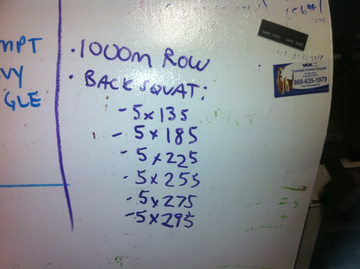 MPT
VY
GLE
· 1000m ROW
· BACK SQUAT:
- 5 x 135
- 5 x 185
- 5 x 225
- 5 x 255
- 5 x 275
- 5 x 295
860-635-1979